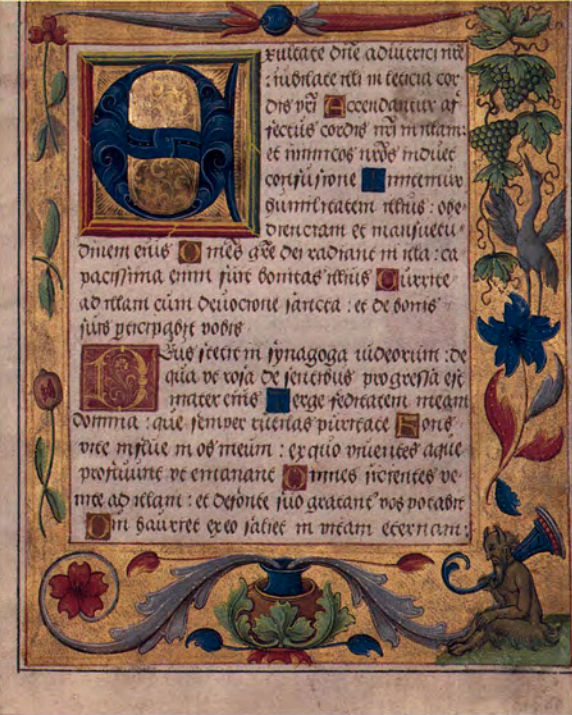 Exultate dñe adiutrici nr̃e
: iubilate illi in leticia cor
dis vr̃i Accendantur af
fectus cordis nr̃i in illam:
et inimicos nr̃os induet
confusione Imitemur
humilitatem illius : obe
dienciam et mansuetu
dinem eius Omẽs gr̃e dei radiant in illa : ca
pacissima enim fuit bonitas illius Currite
ad illam cum devocione sancta : et de bonis
suis
vobis
Deus stetit in synagoga iudeorum : de
qua vt rosa de sentibus progressa est
mater eius Terge feditatem meam
domina : que semper rutilas puritate Fons
vite influe in os meum : ex quo viventes aque
profluunt et emanant Omnes sicientes ve
nite ad illam : et de fonte suo gratant̃ vos potabit
Qui hauriet ex eo saliet in vitam eternam :